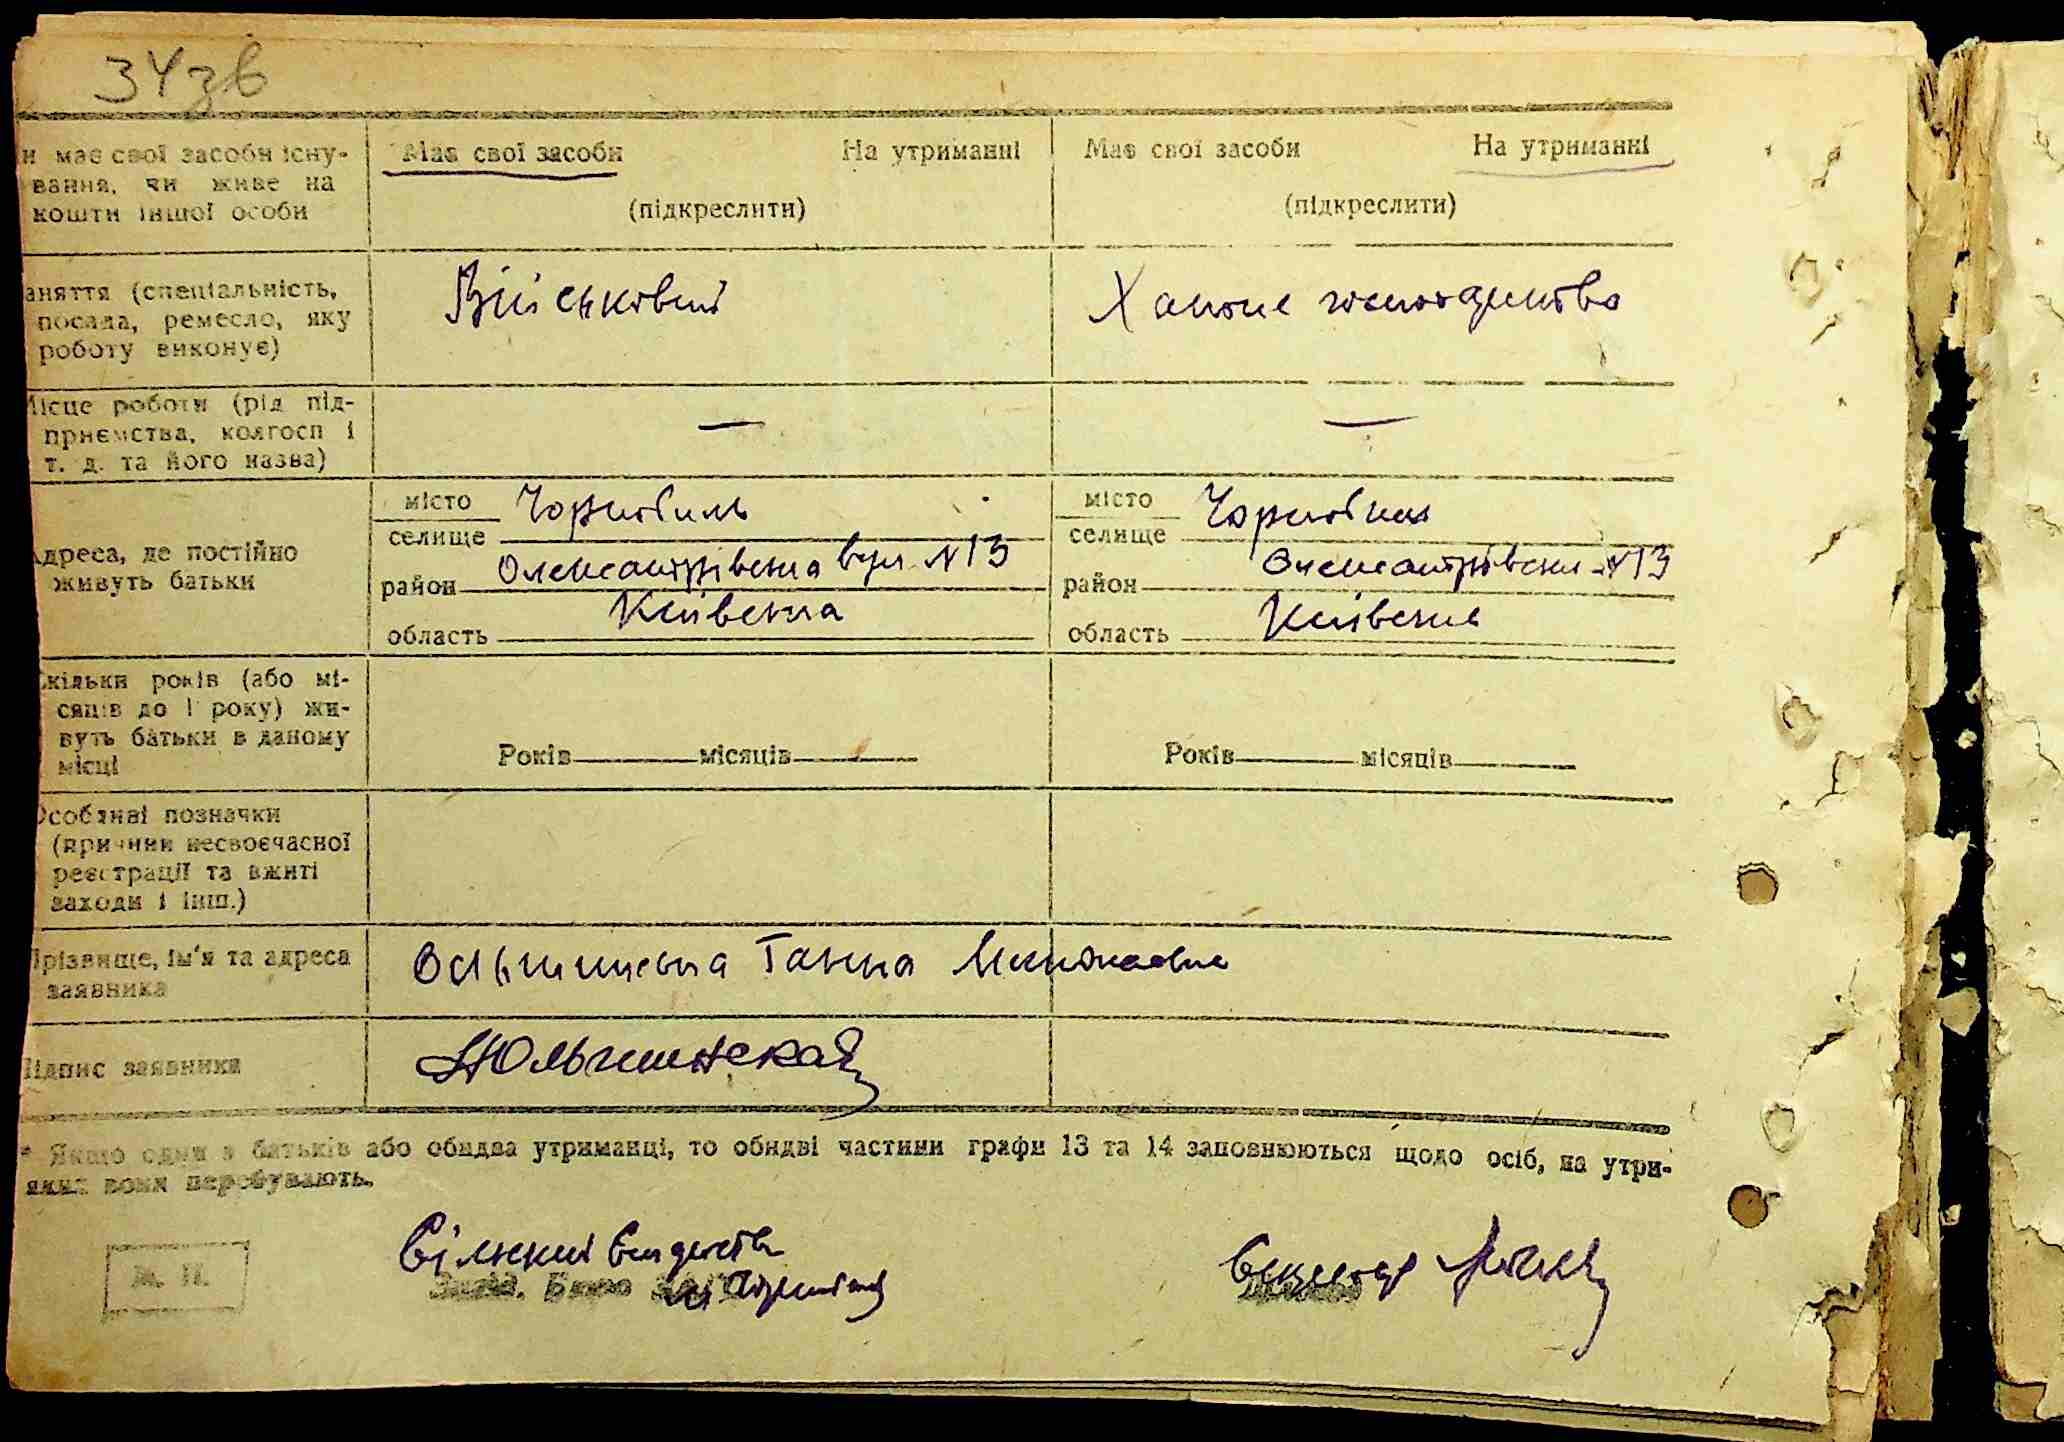 34зв
и має свої засоби існу-
вання, чи живе на
кошти іншої особи
Має свої засоби На утриманні
(підкреслити)
Має свої засоби На утриманні
(підкреслити)
аняття (спеціальність,
посада, ремесло, яку
роботу виконує)
Військовий
Хатнє господарство
Місце роботи (рід під-
приємства, колгосп і
т. д. та його назва)
—
—
Адреса, де постійно
живуть батьки
місто Чорнобиль
селище
район Олександрівська вул. N 13
область Київська
місто Чорнобиль
селище
район Олександрівська N 13
область Київська
Скільки років (або мі-
сяців до 1 року) жи-
вуть батьки в даному
місці
Років місяців
Років місяців
Особливі позначки
(причини несвоєчасної
реєстрації та вжиті
заходи і інш.)
Прізвище, ім'я та адреса
заявника
Ольшинська Ганна Миколаєвна
Підпис заявника
Ольшинская
* Якщо один з батьків або обидва утриманці, то обидві частини графи 13 та 14 заповнюються щодо осіб, на утри-
яких вони перебувають.
М. П.
Секретар